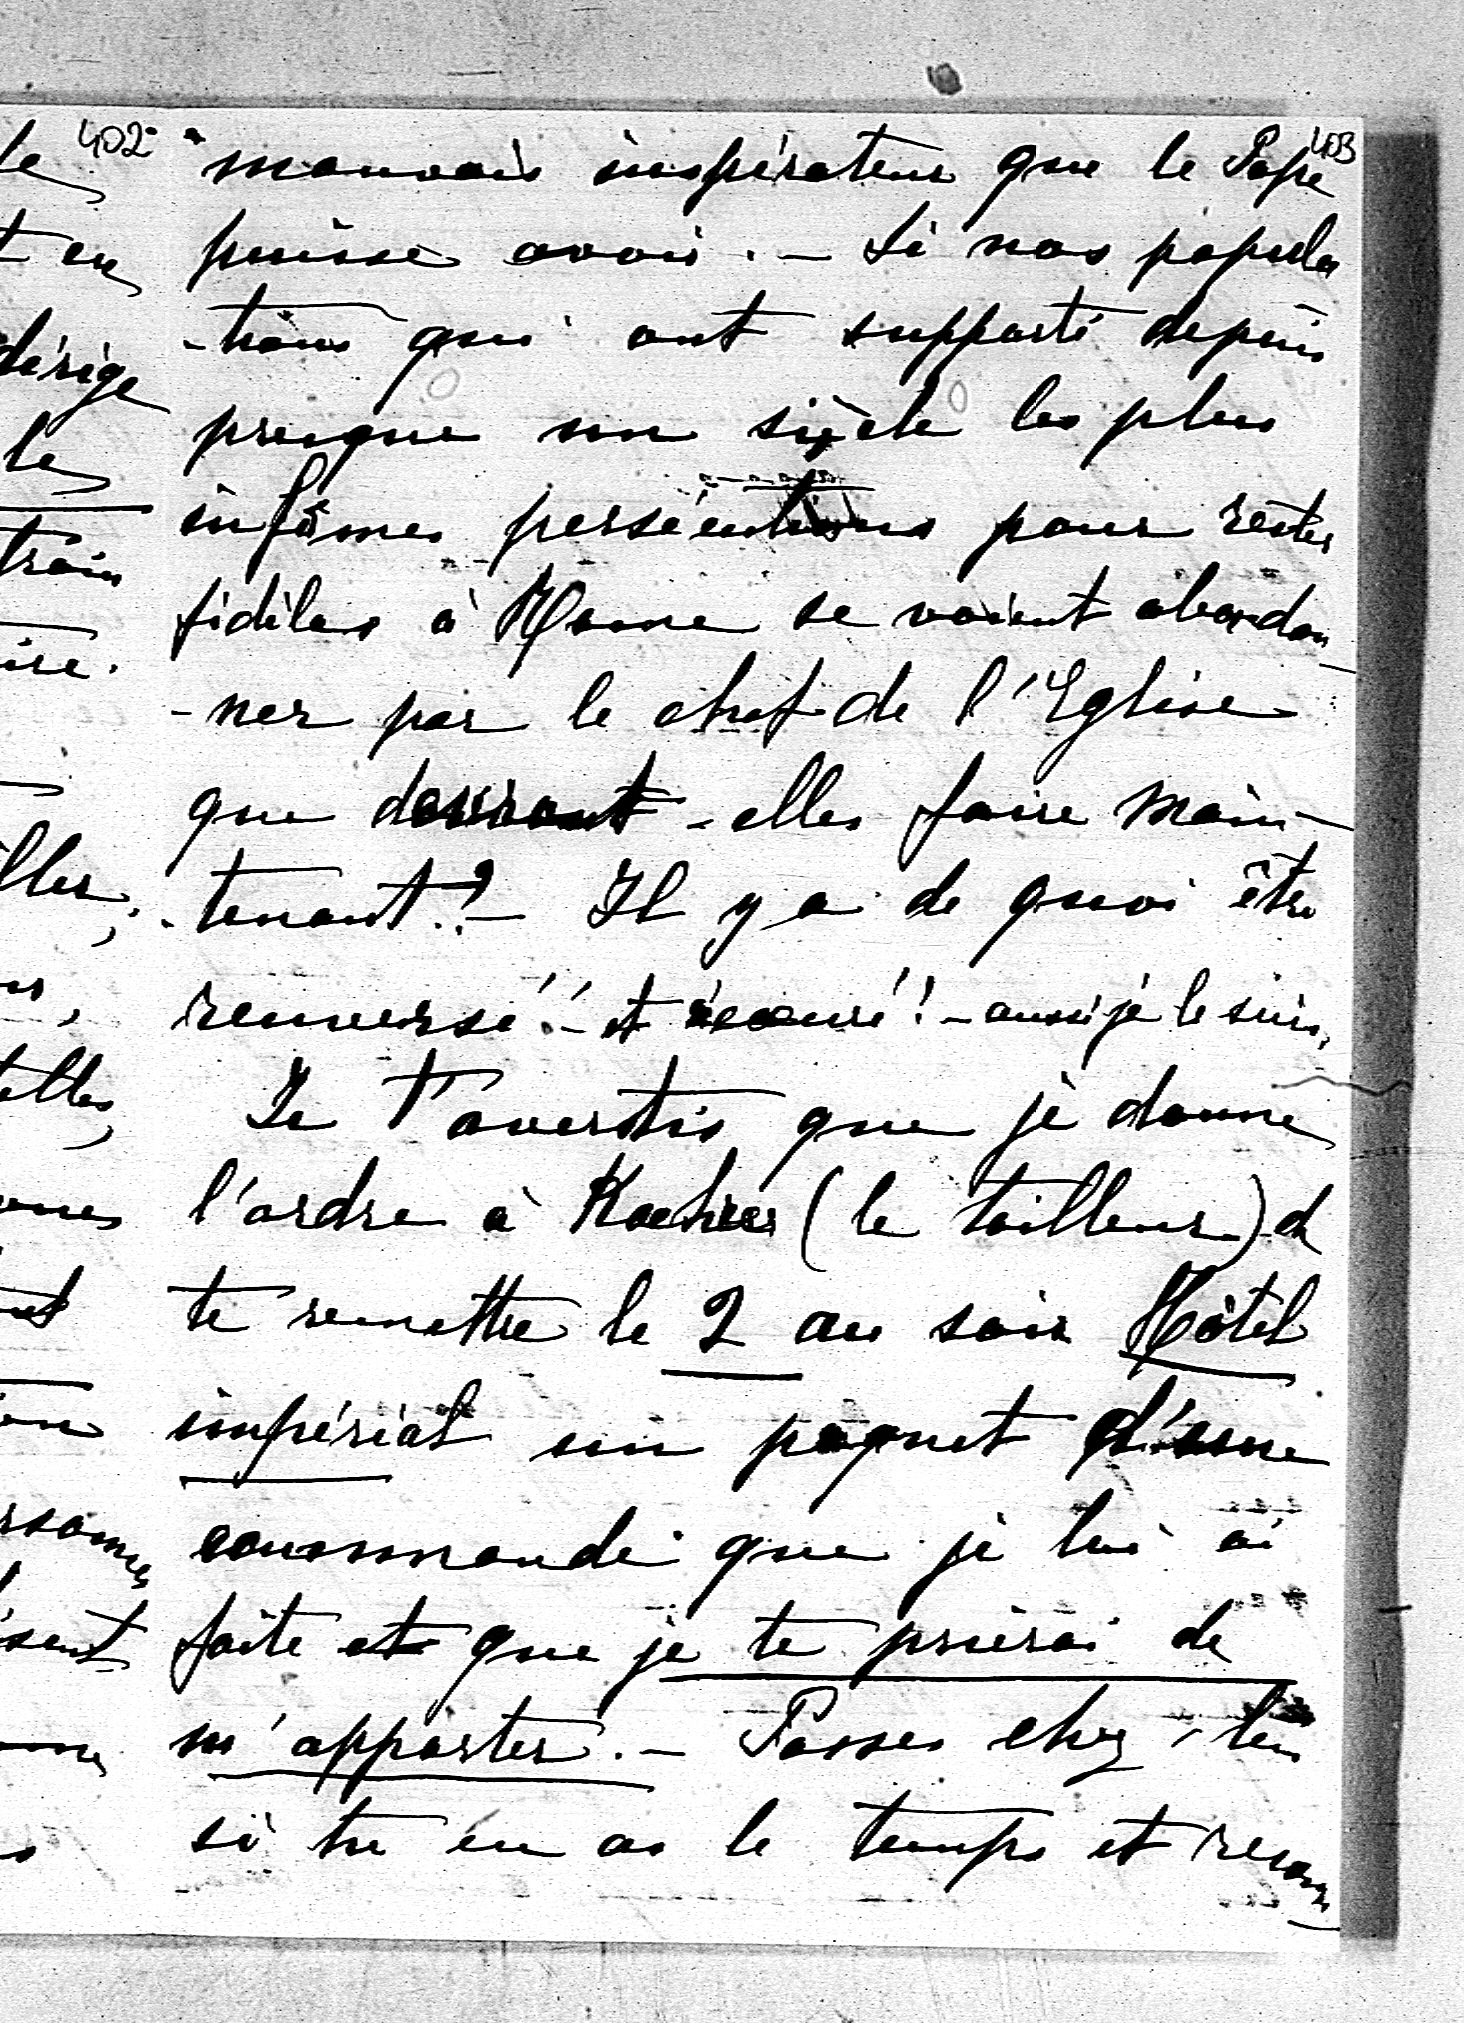 402 403
mauvais inspirateur que le Pape
puisse avoir. – Si nos popula
-tions qui ont supporté depuis
presque un siècle les plus
infâmes persécutions pour rester
fidèles à Rome se voient abandon
-ner par le chef de l'Eglise
que devront-elles faire main-
-tenant? – Il y a de quoi être
renversé! – et écœuré! – aussi je le suis,
Je t'avertis que je donne
l'ordre à (le tailleur) de
te remettre le 2 au soir Hôtel
impérial un paquet d'une
commande que je lui ai
faite et que je te prierai de
m'apporter. – Passes chez lui
si tu en as le temps et
le
t en
dirige
le
train
ire.